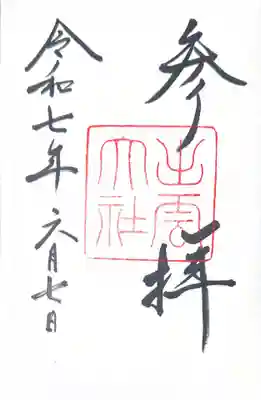 参拝
出雲大社
令和七年六月七日